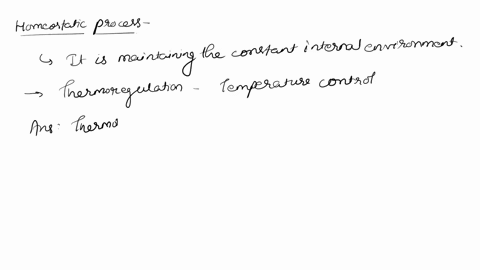 Homeostatic process-
↳ It is maintaining the constant internal environment.
→ Thermoregulation - Temperature control
Ans: Thermo